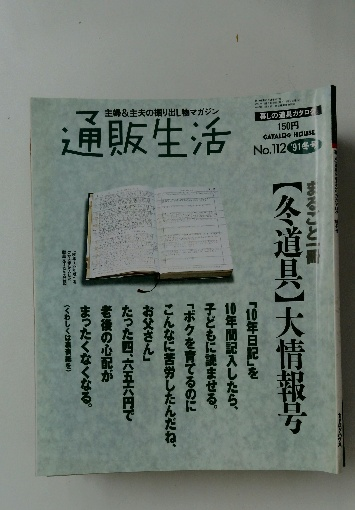 主婦&主夫の掘り出し物マガジン
通販生活
暮しの道具カタログ
150円
CATALOG HOUSE
No.112 '91冬号
まるごと一冊
【冬道具】大情報号
「10年日記」を
10年間記入したら、
子どもに読ませる。
「ボクを育てるのに
こんなに苦労したんだね、
お父さん」
たった四、六五六円で
老後の心配が
まったくなくなる。